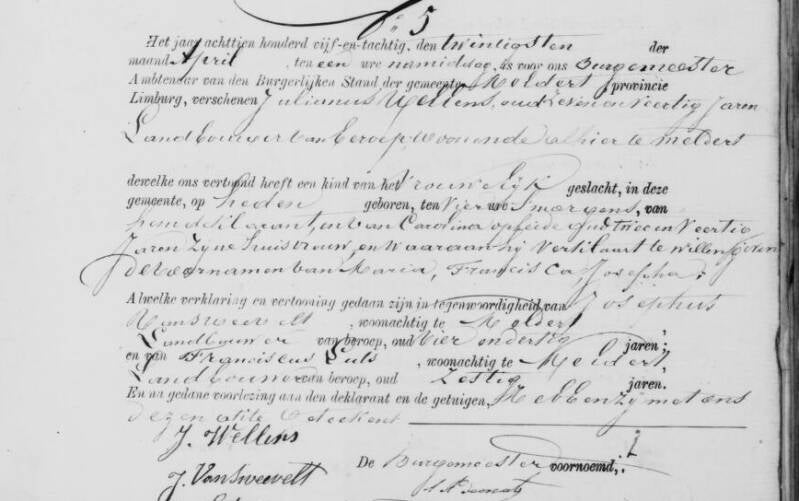 N° 5
Het jaar achttien honderd vijf-en-tachtig, den twintigsten der
maand April, ten een ure namiddag, is voor ons Burgemeester
Ambtenaar van den Burgerlijken Stand, der gemeente Meldert provincie
Limburg, verschenen Julianus Wellens, oud zeven en veertig Jaren
Landbouwer van beroep, woonende alhier te Meldert
dewelke ons vertoond heeft een kind van het vrouwelijk geslacht, in deze
gemeente, op heden geboren, ten vier ure s'morgens, van
hem deklarant, en van Carolina oud twee en veertig
Jaren zyne huisvrouw, en waaraan hij verklaart te willen geven
de voornamen van Maria, Francisca, Josepha;
Alwelke verklaring en vertooning gedaan zijn in tegenwoordigheid van Josephus
Vansweevelt, woonachtig te Meldert,
Landbouwer van beroep, oud vier en dertig jaren;
en van Franciscus, woonachtig te Meldert,
Landbouwer van beroep, oud zestig jaren.
En na gedane voorlezing aan den deklarant en de getuigen, Hebben zij met ons
dezen akte Geteekent
J. Wellens
De Burgemeester voornoemd,
J. Vansweevelt